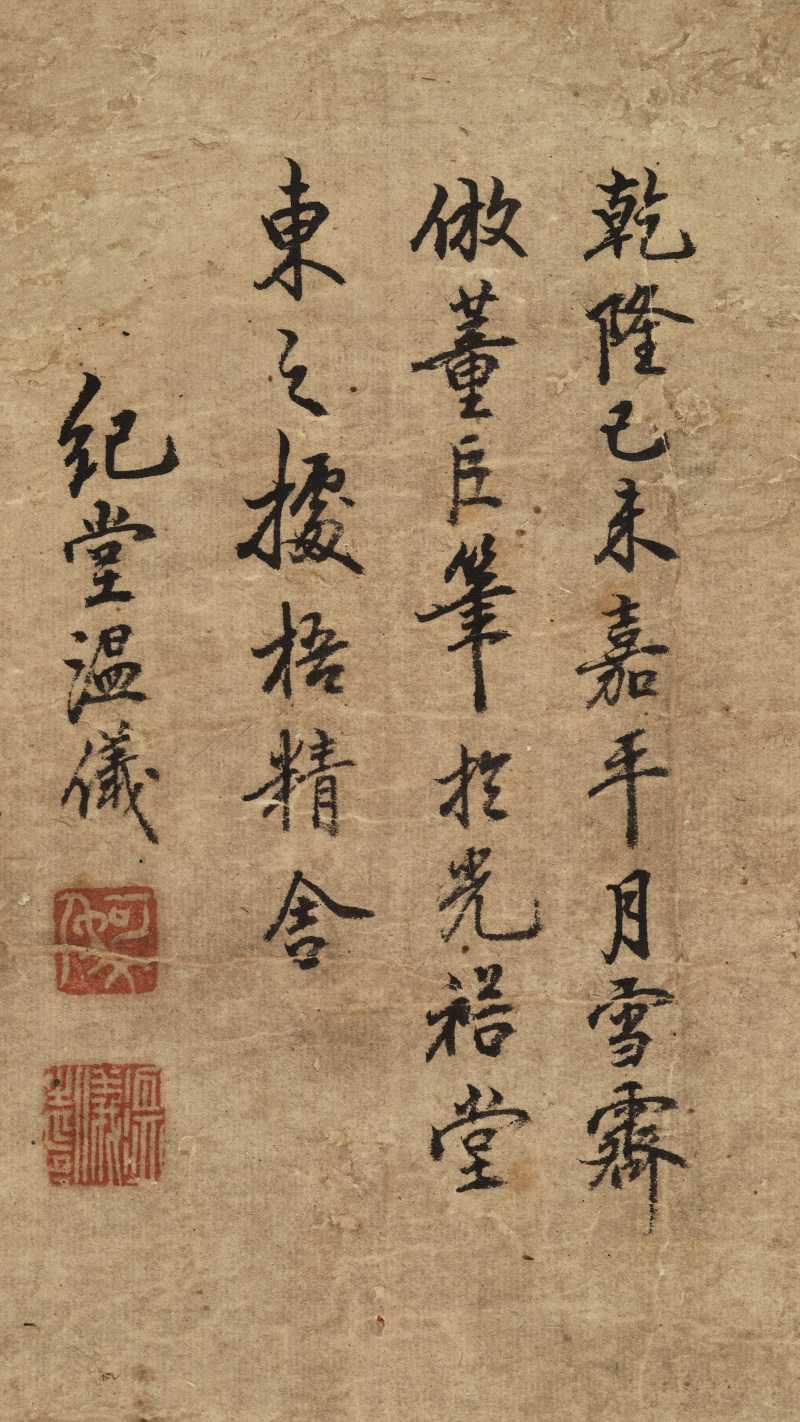 乾隆己未嘉平月雪霽
倣董臣筆於光裕堂
東之據梧精舍
紀堂溫儀